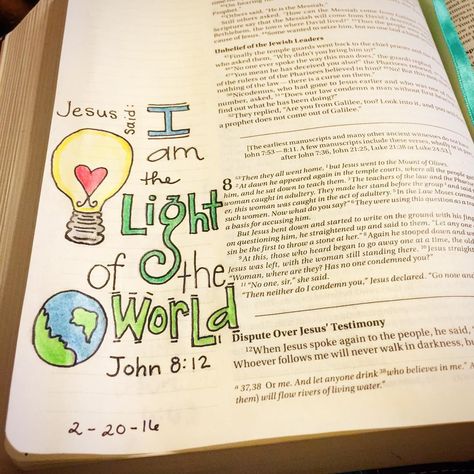 Jesus said:
I
am
the
Light
of the
World
John 8:12
2-20-16
Prophet."
41 Others said, "He is the Messiah."
Still others asked, "How can the Messiah come from
Scripture say that the Messiah will come from David's
Bethlehem, the town where David lived?" 43 Thus the
cause of Jesus. 44 Some wanted to seize him, but no one laid a
Unbelief of the Jewish Leaders
45 Finally the temple guards went back to the chief priests and
who asked them, "Why didn't you bring him in?"
46 "No one ever spoke the way this man does," the guards replied
47 "You mean he has deceived you also?" the Pharisees
of the rulers or of the Pharisees believed in him? 49 No! But this
nothing of the law— there is a curse on them."
50 Nicodemus, who had gone to Jesus earlier and who was
number, asked, 51 "Does our law condemn a man without
find out what he has been doing?"
52 They replied, "Are you from Galilee, too? Look into it, and you
a prophet does not come out of Galilee."
[The earliest manuscripts and many other ancient witnesses do not have
John 7:53—8:11. A few manuscripts include these verses, wholly
after John 7:36, John 21:25, Luke 21:38 or Luke 24:53.]
8
53 Then they all went home, 1 but Jesus went to the Mount of Olives.
2 At dawn he appeared again in the temple courts, where all the people
him, and he sat down to teach them. 3 The teachers of the law and the
woman caught in adultery. They made her stand before the group 4 and
er, this woman was caught in the act of adultery. 5 In the Law Moses
such women. Now what do you say?" 6 They were using this question
a basis for accusing him.
But Jesus bent down and started to write on the ground with his
on questioning him, he straightened up and said to them, "Let any one
sin be the first to throw a stone at her." 8 Again he stooped down and
9 At this, those who heard began to go away one at a time, the
Jesus was left, with the woman still standing there. 10 Jesus
"Woman, where are they? Has no one condemned you?"
11 "No one, sir," she said.
"Then neither do I condemn you," Jesus declared. "Go now
Dispute Over Jesus' Testimony
12 When Jesus spoke again to the people, he said,
Whoever follows me will never walk in darkness, bu
a 37,38 Or me. And let anyone drink 38 who believes in me." As
them) will flow rivers of living water."